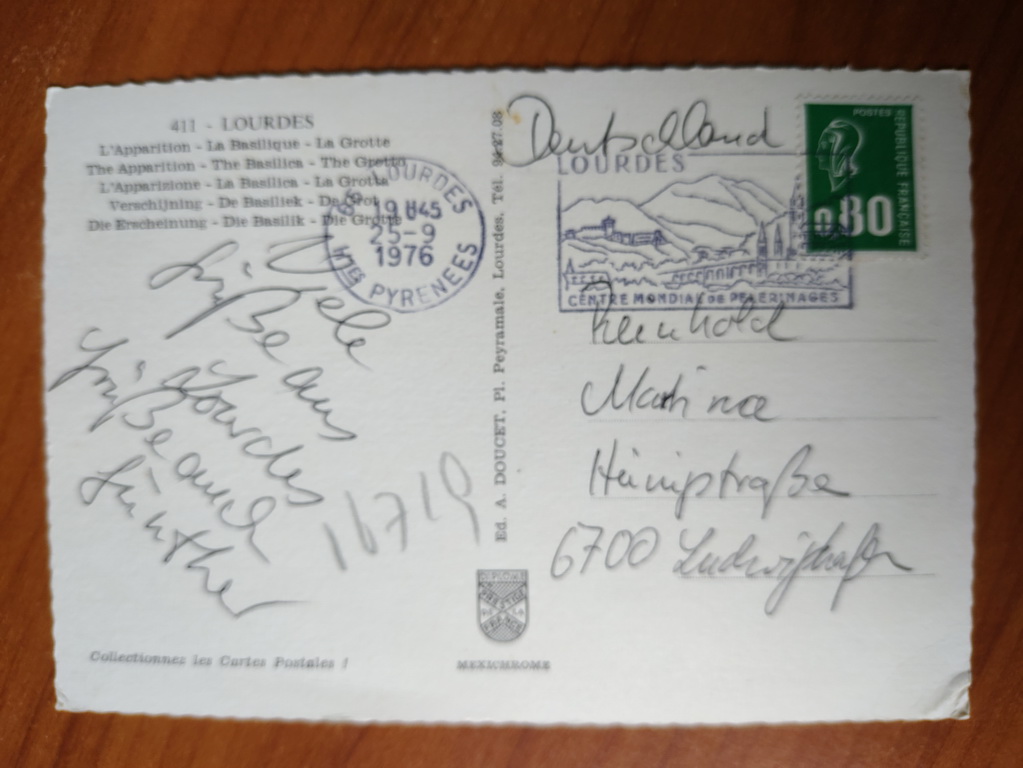 411 - LOURDES
L'Apparition - La Basilique - La Grotte
The Apparition - The Basilica - The Grotto
L'Apparizione - La Basilica - La Grotta
Verschijning - De Basiliek - De Grot
Die Erscheinung - Die Basilik - Die Grotte
LOURDES
19 H45
25-9
1976
Htes PYRENEES
Viele
Grüße aus
Lourdes
Grüße auch
Günther
16719
Collectionnez les Cartes Postales !
Ed. A. DOUCET, Pl. Peyramale, Lourdes, Tél. 94-27.08
PRESTIGE
FRANCE
MEXICHROME
Deutschland
LOURDES
CENTRE MONDIAL de PELERINAGES
POSTES
REPUBLIQUE FRANÇAISE
0.80
Reinhold
Martina
6700 Ludwigshafen